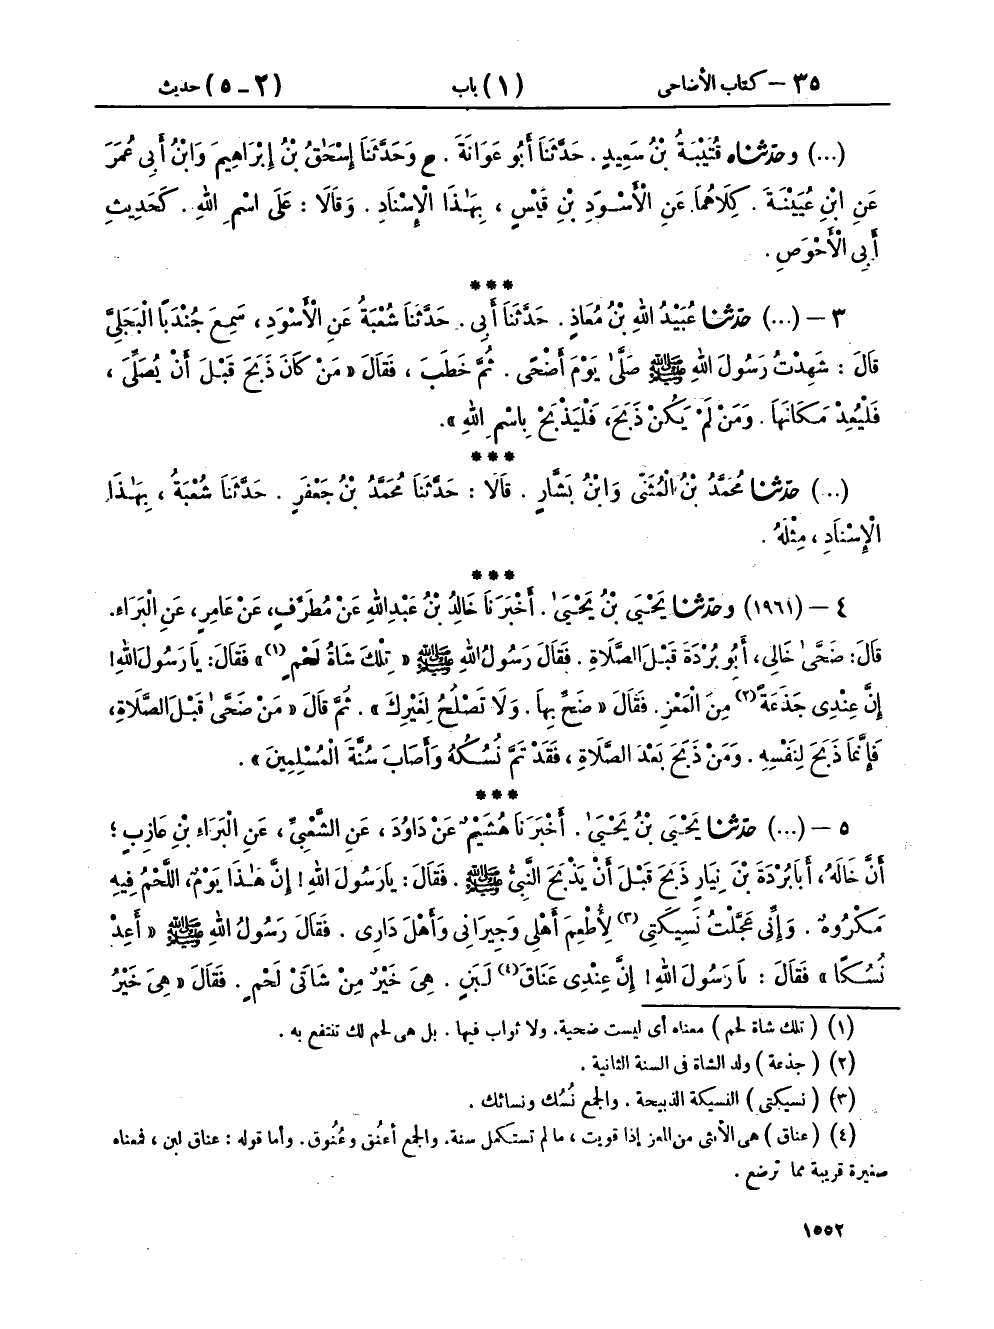 ٣٥ – كتاب الأضاحى (١) باب (٢ – ٥) حديث
(...) وحدثناه قُتَيْبَةُ بْنُ سَعِيدٍ. حَدَّثَنَا أَبُو عَوَانَةَ. ح وَحَدَّثَنَا إِسْحَٰقُ بْنُ إِبْرَاهِيمَ وَابْنُ أَبِي عُمَرَ
عَنِ ابْنِ عُيَيْنَةَ. كِلَاهُمَا عَنِ الْأَسْوَدِ بْنِ قَيْسٍ، بِهَٰذَا الْإِسْنَادِ. وَقَالَا: عَلَى اسْمِ اللهِ. كَحَدِيثِ
أَبِي الْأَحْوَصِ.
***
٣ – (...) حدثنا عُبَيْدُ اللهِ بْنُ مُعَاذٍ. حَدَّثَنَا أَبِي. حَدَّثَنَا شُعْبَةُ عَنِ الْأَسْوَدِ، سَمِعَ جُنْدَبًا الْبَجَلِيَّ
قَالَ: شَهِدْتُ رَسُولَ اللهِ ﷺ صَلَّىٰ يَوْمَ أَضْحًى. ثُمَّ خَطَبَ، فَقَالَ «مَنْ كَانَ ذَبَحَ قَبْلَ أَنْ يُصَلِّىَ،
فَلْيُعِدْ مَكَانَهَا. وَمَنْ لَمْ يَكُنْ ذَبَحَ، فَلْيَذْبَحْ بِاسْمِ اللهِ».
***
(...) حدثنا مُحَمَّدُ بْنُ الْمُثَنَّى وَابْنُ بَشَّارٍ. قَالَا: حَدَّثَنَا مُحَمَّدُ بْنُ جَعْفَرٍ. حَدَّثَنَا شُعْبَةُ، بِهَٰذَا
الْإِسْنَادِ، مِثْلَهُ.
***
٤ – (١٩٦١) وحدثنا يَحْيَى بْنُ يَحْيَىٰ. أَخْبَرَنَا خَالِدُ بْنُ عَبْدِاللهِ عَنْ مُطَرِّفٍ، عَنْ عَامِرٍ، عَنِ الْبَرَاءِ.
قَالَ: ضَحَّىٰ خَالِي، أَبُو بُرْدَةَ قَبْلَ الصَّلَاةِ. فَقَالَ رَسُولُ اللهِ ﷺ «تِلْكَ شَاةُ لَحْمٍ(١)» فَقَالَ: يَا رَسُولَ اللهِ!
إِنَّ عِنْدِي جَذَعَةً(٢) مِنَ الْمَعْزِ. فَقَالَ «ضَحِّ بِهَا. وَلَا تَصْلُحُ لِغَيْرِكَ». ثُمَّ قَالَ «مَنْ ضَحَّىٰ قَبْلَ الصَّلَاةِ،
فَإِنَّمَا ذَبَحَ لِنَفْسِهِ. وَمَنْ ذَبَحَ بَعْدَ الصَّلَاةِ، فَقَدْ تَمَّ نُسُكُهُ وَأَصَابَ سُنَّةَ الْمُسْلِمِينَ».
***
٥ – (...) حدثنا يَحْيَى بْنُ يَحْيَىٰ. أَخْبَرَنَا هُشَيْمٌ عَنْ دَاوُدَ، عَنِ الشَّعْبِيِّ، عَنِ الْبَرَاءِ بْنِ عَازِبٍ؛
أَنَّ خَالَهُ، أَبَا بُرْدَةَ بْنَ نِيَارٍ ذَبَحَ قَبْلَ أَنْ يَذْبَحَ النَّبِيُّ ﷺ. فَقَالَ: يَا رَسُولَ اللهِ! إِنَّ هَٰذَا يَوْمٌ، اللَّحْمُ فِيهِ
مَكْرُوهٌ. وَإِنِّي عَجَّلْتُ نَسِيكَتِي(٣) لِأُطْعِمَ أَهْلِي وَجِيرَانِي وَأَهْلَ دَارِي. فَقَالَ رَسُولُ اللهِ ﷺ «أَعِدْ
نُسُكًا» فَقَالَ: يَا رَسُولَ اللهِ! إِنَّ عِنْدِي عَنَاقَ(٤) لَبَنٍ. هِيَ خَيْرٌ مِنْ شَاتَيْ لَحْمٍ. فَقَالَ «هِيَ خَيْرُ
(١) (تلك شاة لحم) معناه أى ليست ضحية. ولا ثواب فيها. بل هى لحم لك تنتفع به.
(٢) (جذعة) ولد الشاة فى السنة الثانية.
(٣) (نسيكتى) النسيكة الذبيحة. والجمع نُسُك ونسائك.
(٤) (عناق) هى الأنثى من المعز إذا قويت، ما لم تستكمل سنة. والجمع أعنُق وعُنُوق. وأما قوله: عناق لبن، فمعناه
صغيرة قريبة مما ترضع.
١٥٥٢